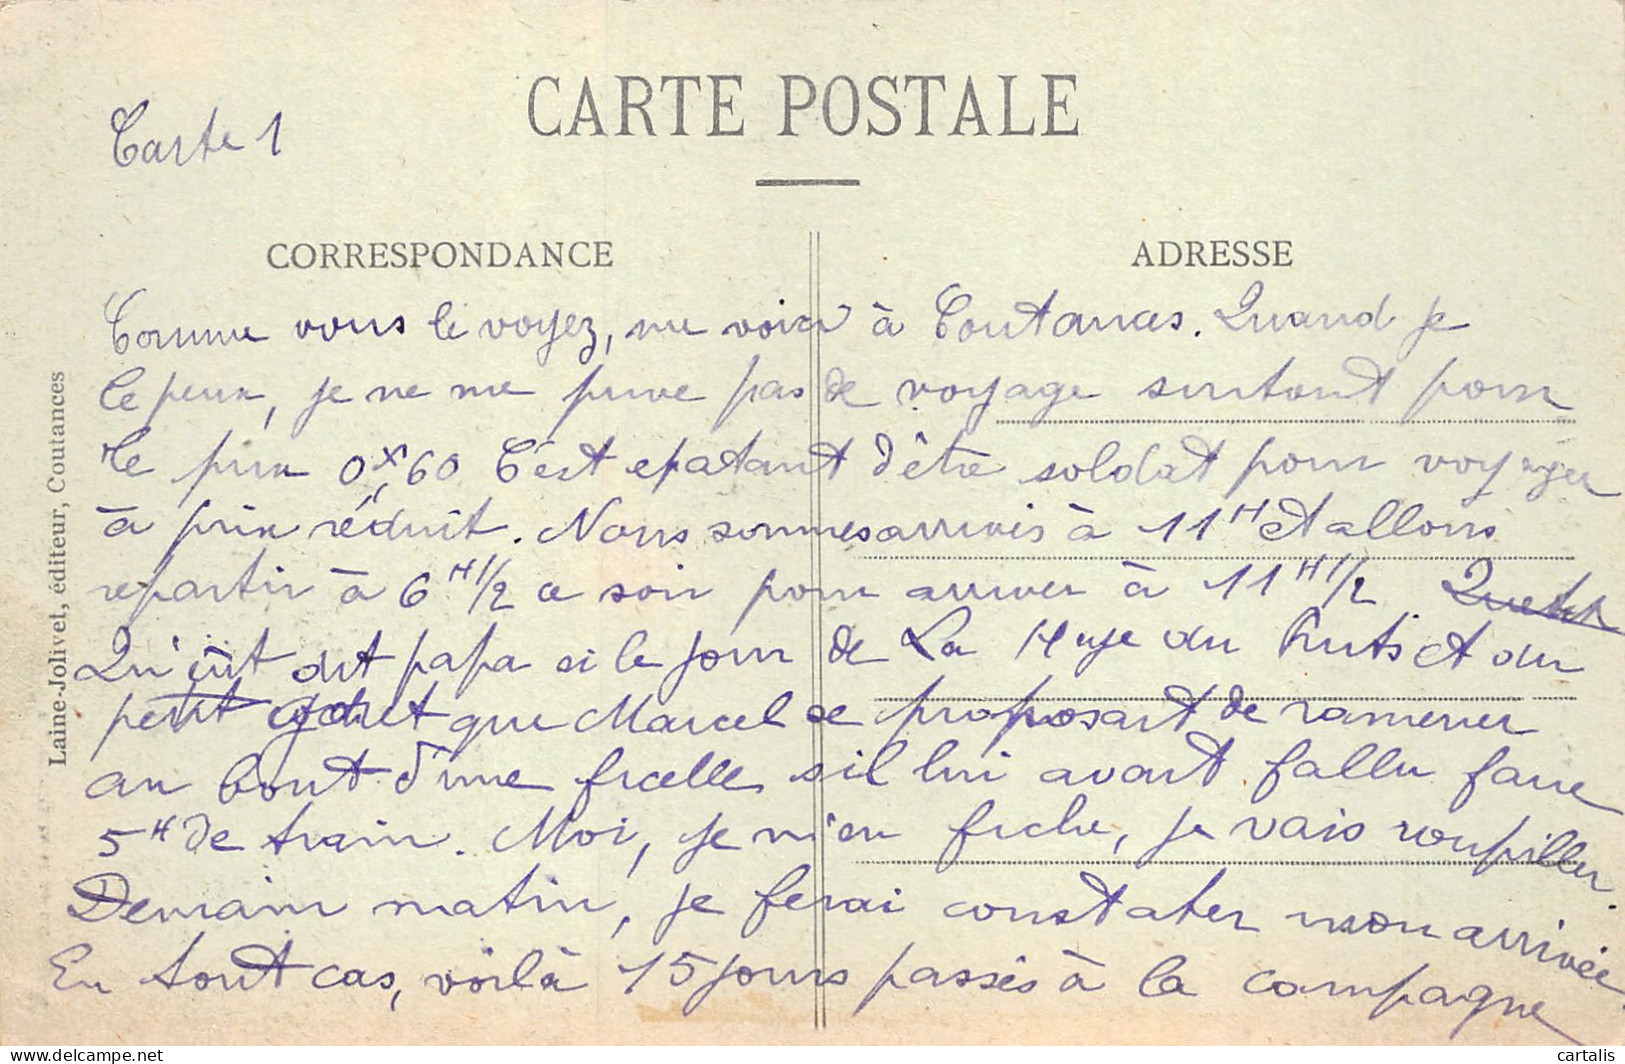 CARTE POSTALE
Carte 1
CORRESPONDANCE
ADRESSE
Comme vous le voyez, me voici à Coutances. Quand je
le peux, je ne me prive pas de voyage surtout pour
le prix 0,60 C'est epatant d'être soldat pour voyager
à prix réduit. Nous sommes arrivés à 11H et allons
repartir à 6H1/2 ce soir pour arriver à 11H1/2
Qu'eût dit papa si le jour de La Haye du Puits et du
petit que Marcel se proposait de ramener
au bout d'une ficelle s'il lui avait fallu faire
5H de train. Moi, je m'en fiche, je vais roupiller.
Demain matin, je ferai constater mon arrivée.
En tout cas, voilà 15 jours passés à la campagne
Laine-Jolivet, éditeur, Coutances
delcampe.net
cartalis